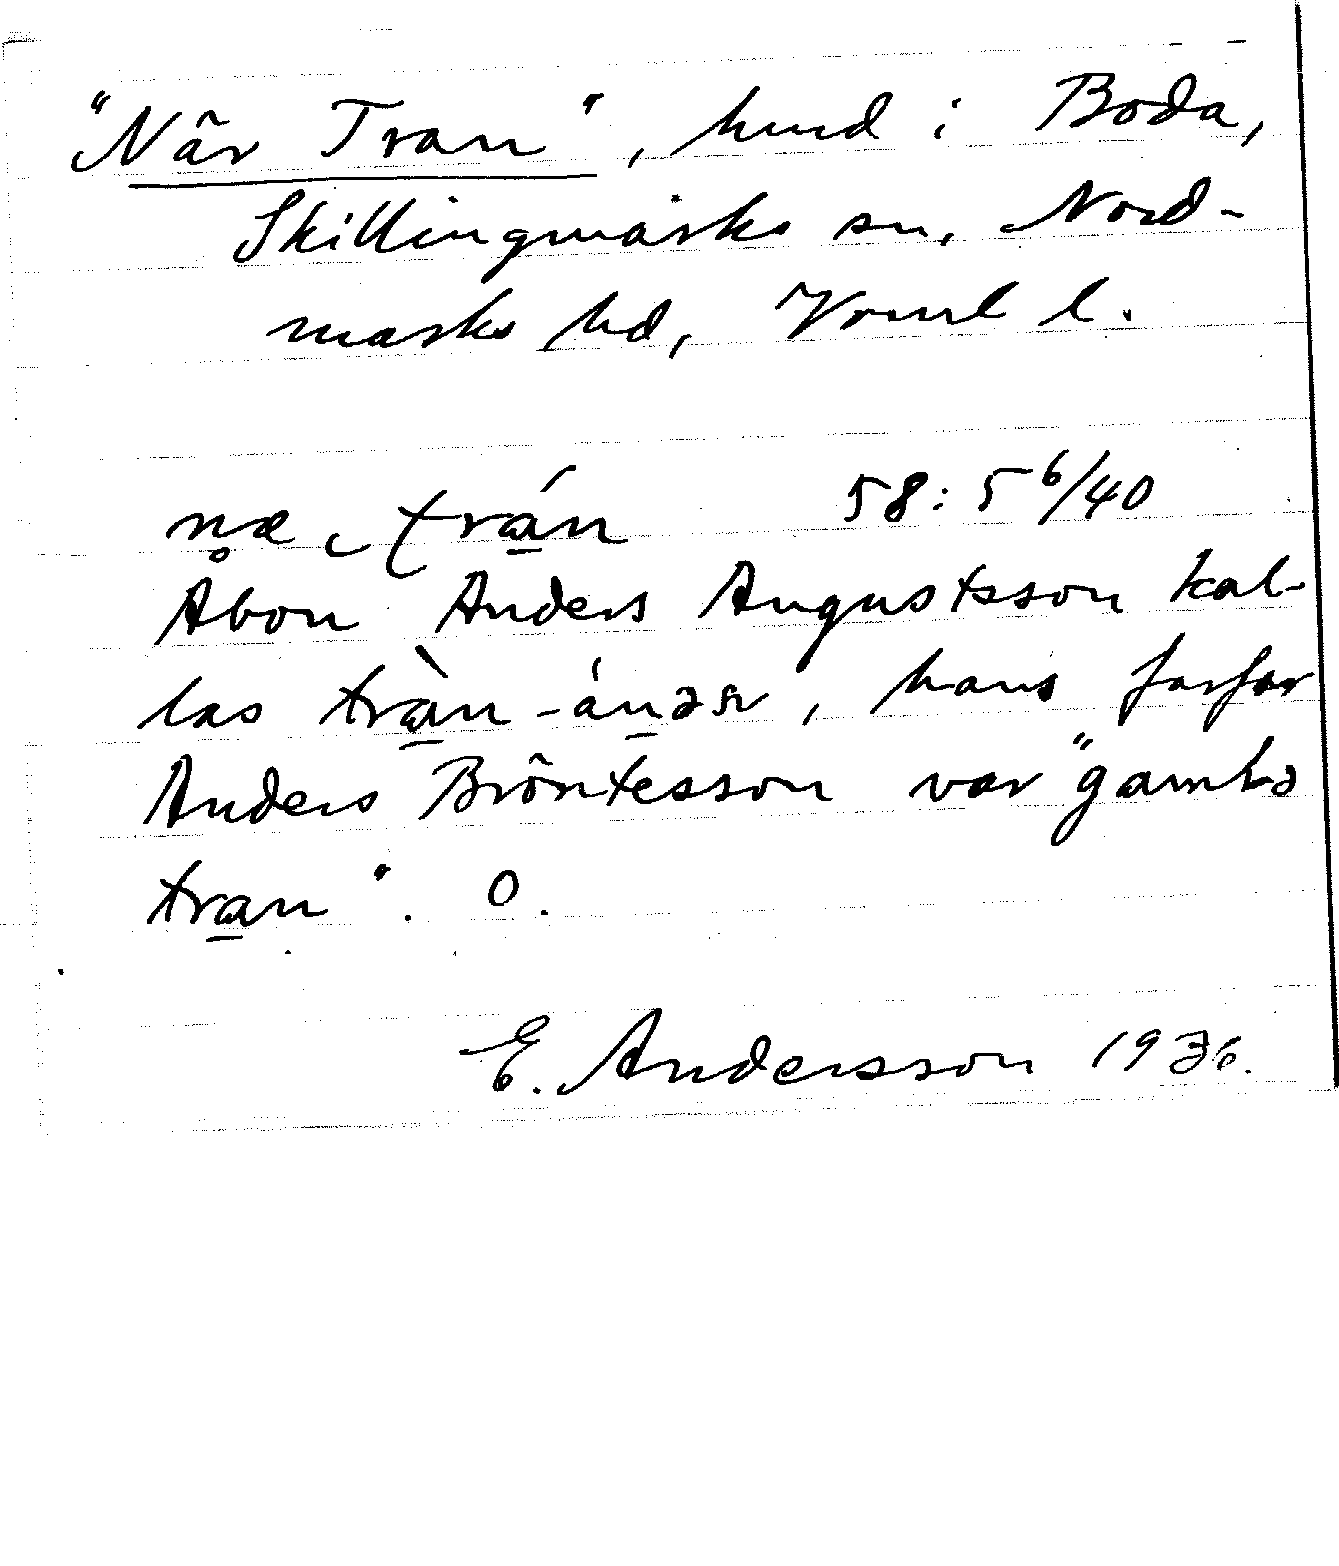 "När Tran", hmd i Boda,
Skillingmarks sn, Nord-
marks hd, Vrml l.
næ trán 58: 5 6/40
Åbon Anders Augustsson kal-
las tràn-ánəsr, hans farfar
Anders Bröntesson var "gamɫə
tran". O.
E. Andersson 1936.